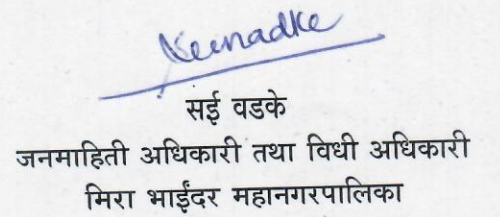 सई वडके
जनमाहिती अधिकारी तथा विधी अधिकारी
मिरा भाईंदर महानगरपालिका